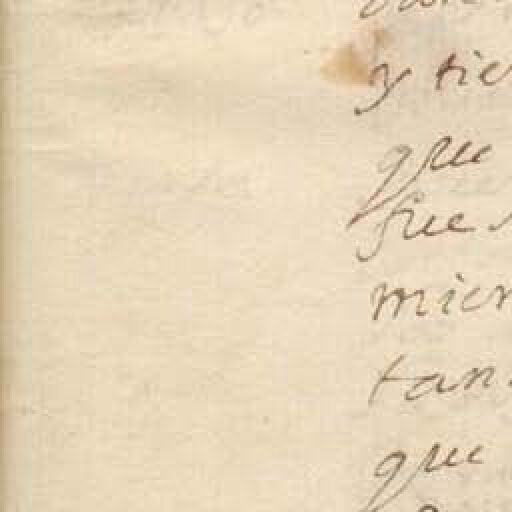 y tie
que
fue
mien
tan
que